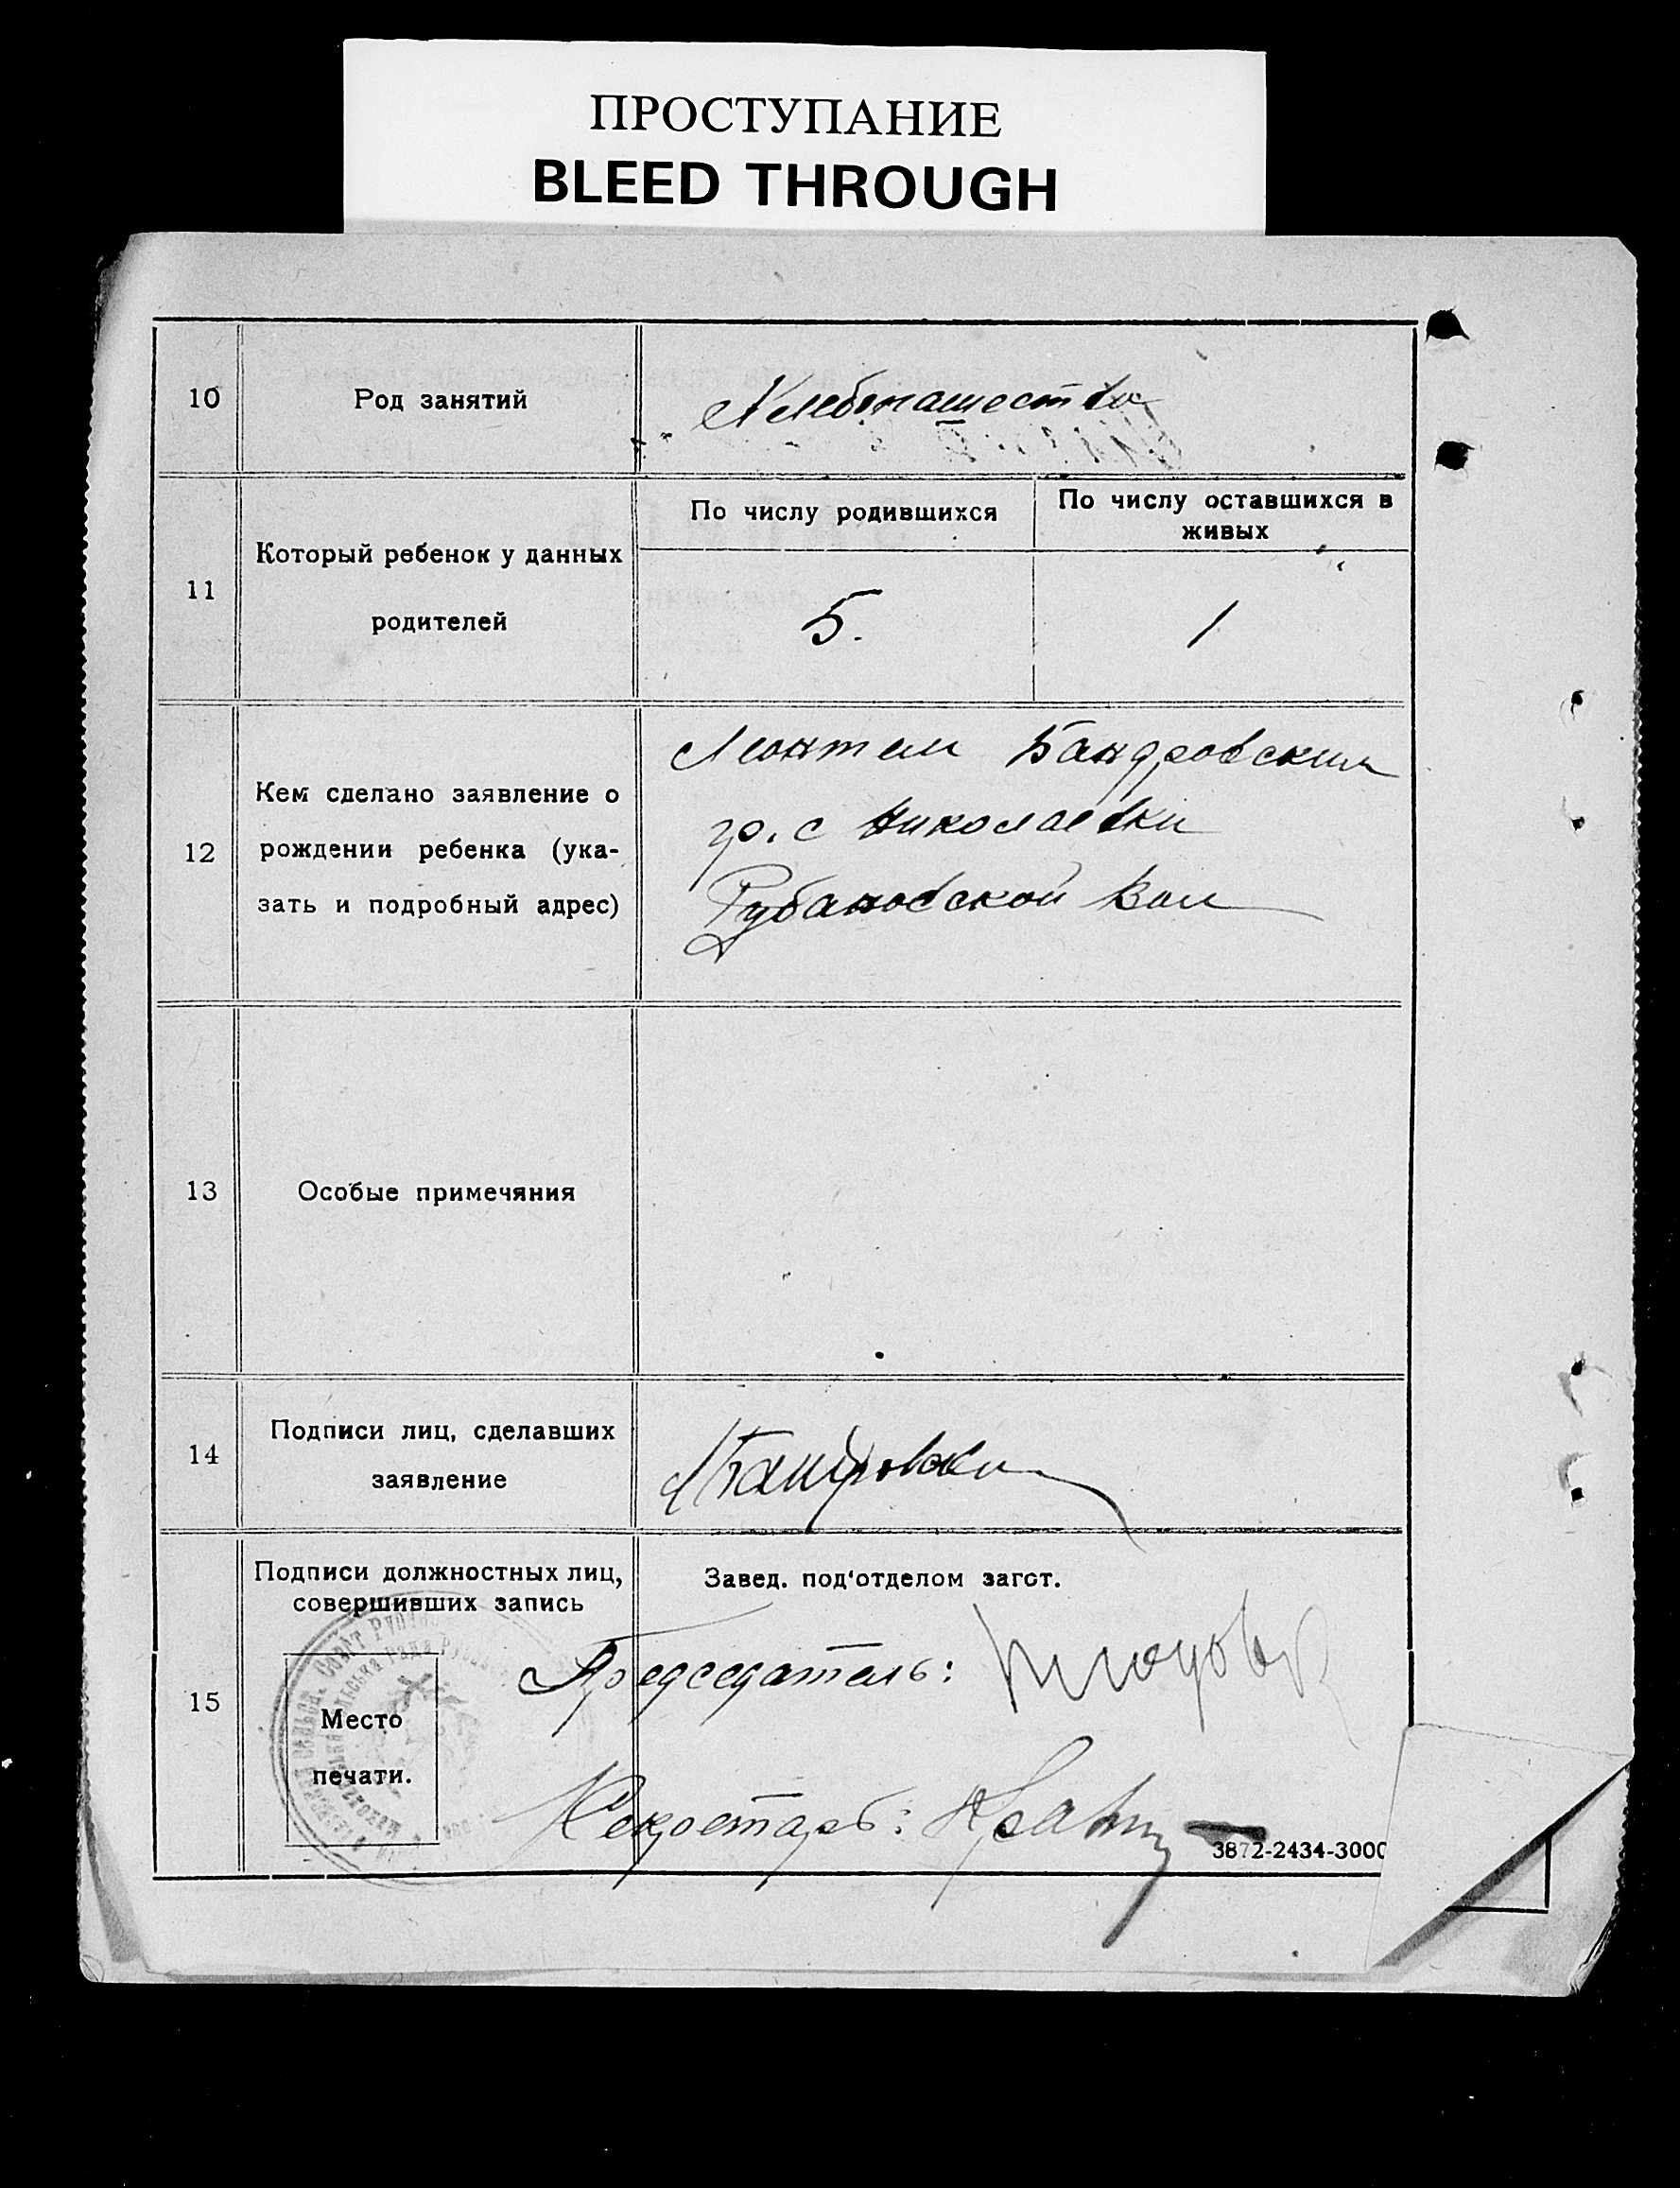 ПРОСТУПАНИЕ
BLEED THROUGH
10
Род занятий
Хлебопашество
11
Который ребенок у данных
родителей
По числу родившихся
По числу оставшихся в
живых
5.
1
12
Кем сделано заявление о
рождении ребенка (ука-
зать и подробный адрес)
Леонтий Бандровский
гр. с Николаевки
Рубановской Вол
13
Особые примечяния
14
Подписи лиц, сделавших
заявление
ЛБандровски
15
Подписи должностных лиц,
совершивших запись
Завед. под'отделом загст.
Место
печати.
Председатель:
Секретарь:
3872-2434-3000